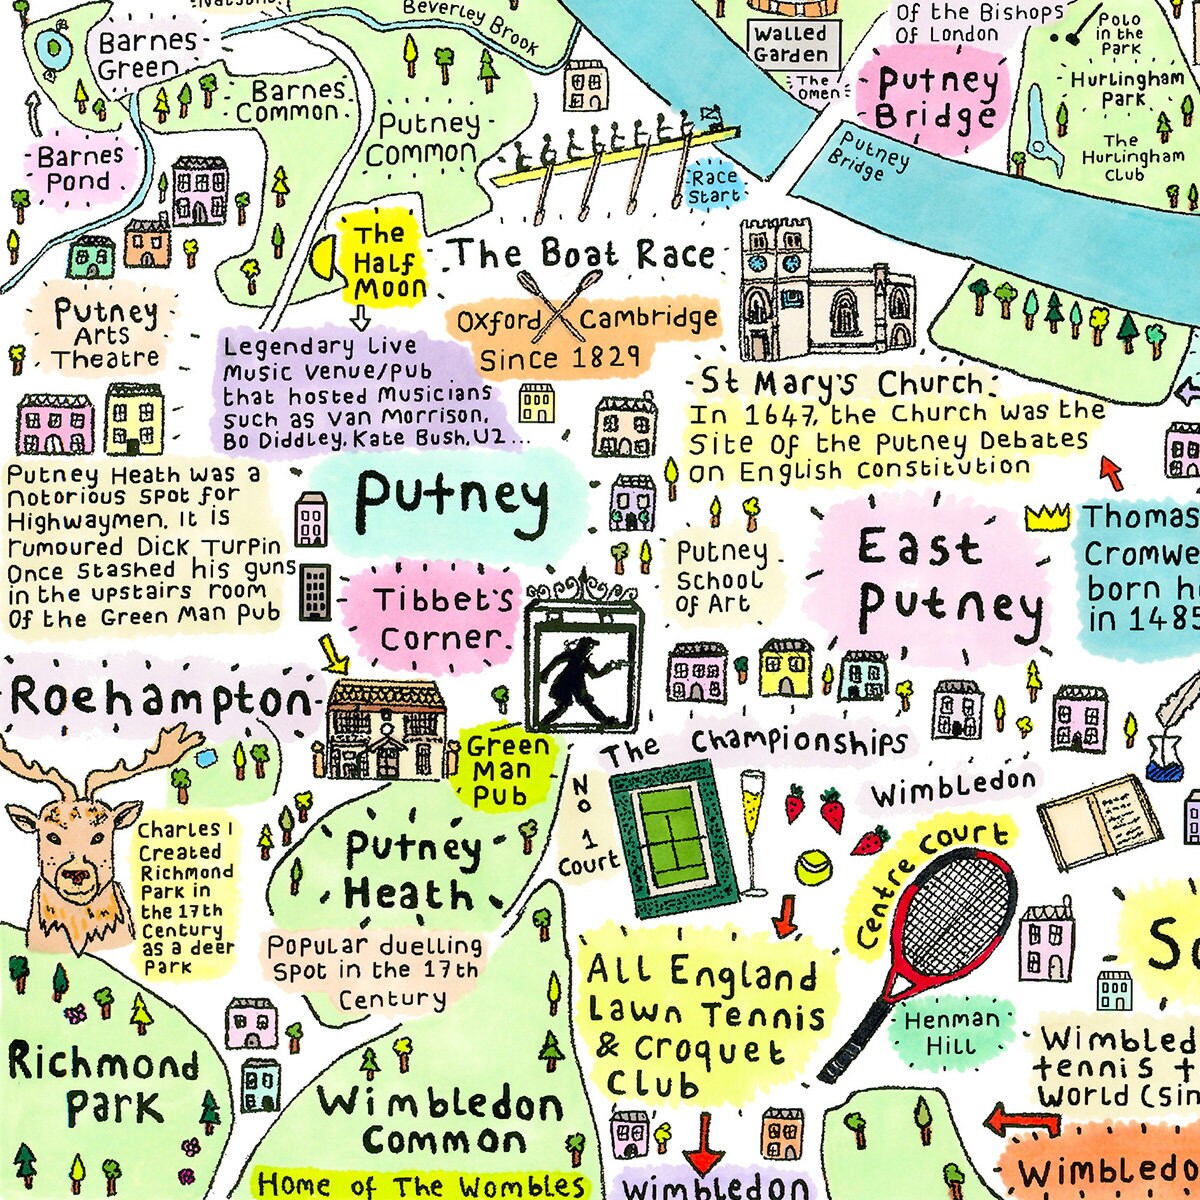 Beverley Brook
Barnes
Green
Barnes
Common
Putney
Common
Barnes
Pond
Walled
Garden
The
Omen
Of the Bishops
Of London
Putney
Bridge
Putney
Bridge
Polo
in the
Park
Hurlingham
Park
The
Hurlingham
Club
Race
Start
The Boat Race
Oxford Cambridge
Since 1829
The
Half
Moon
Legendary Live
Music Venue/Pub
that hosted Musicians
such as Van Morrison,
Bo Diddley, Kate Bush, U2...
Putney
Arts
Theatre
St Mary's Church:
In 1647, the Church was the
Site Of the Putney Debates
on English Constitution
Putney Heath was a
notorious spot for
Highwaymen. It is
rumoured Dick Turpin
Once Stashed his guns
in the upstairs room
Of the Green Man Pub
Putney
Putney
School
Of Art
East
Putney
Thomas
Cromwe
born h
in 1485
Tibbet's
Corner
Roehampton
Green
Man
Pub
The Championships
Wimbledon
No 1
Court
Centre Court
Charles I
Created
Richmond
Park in
the 17th
Century
as a deer
Park
Putney
Heath
Popular duelling
Spot in the 17th
Century
All England
Lawn Tennis
& Croquet
Club
Henman
Hill
Wimbled
tennis t
World (Sin
Richmond
Park
Wimbledon
Common
Home of The Wombles
Wimbledon
Wimbledo